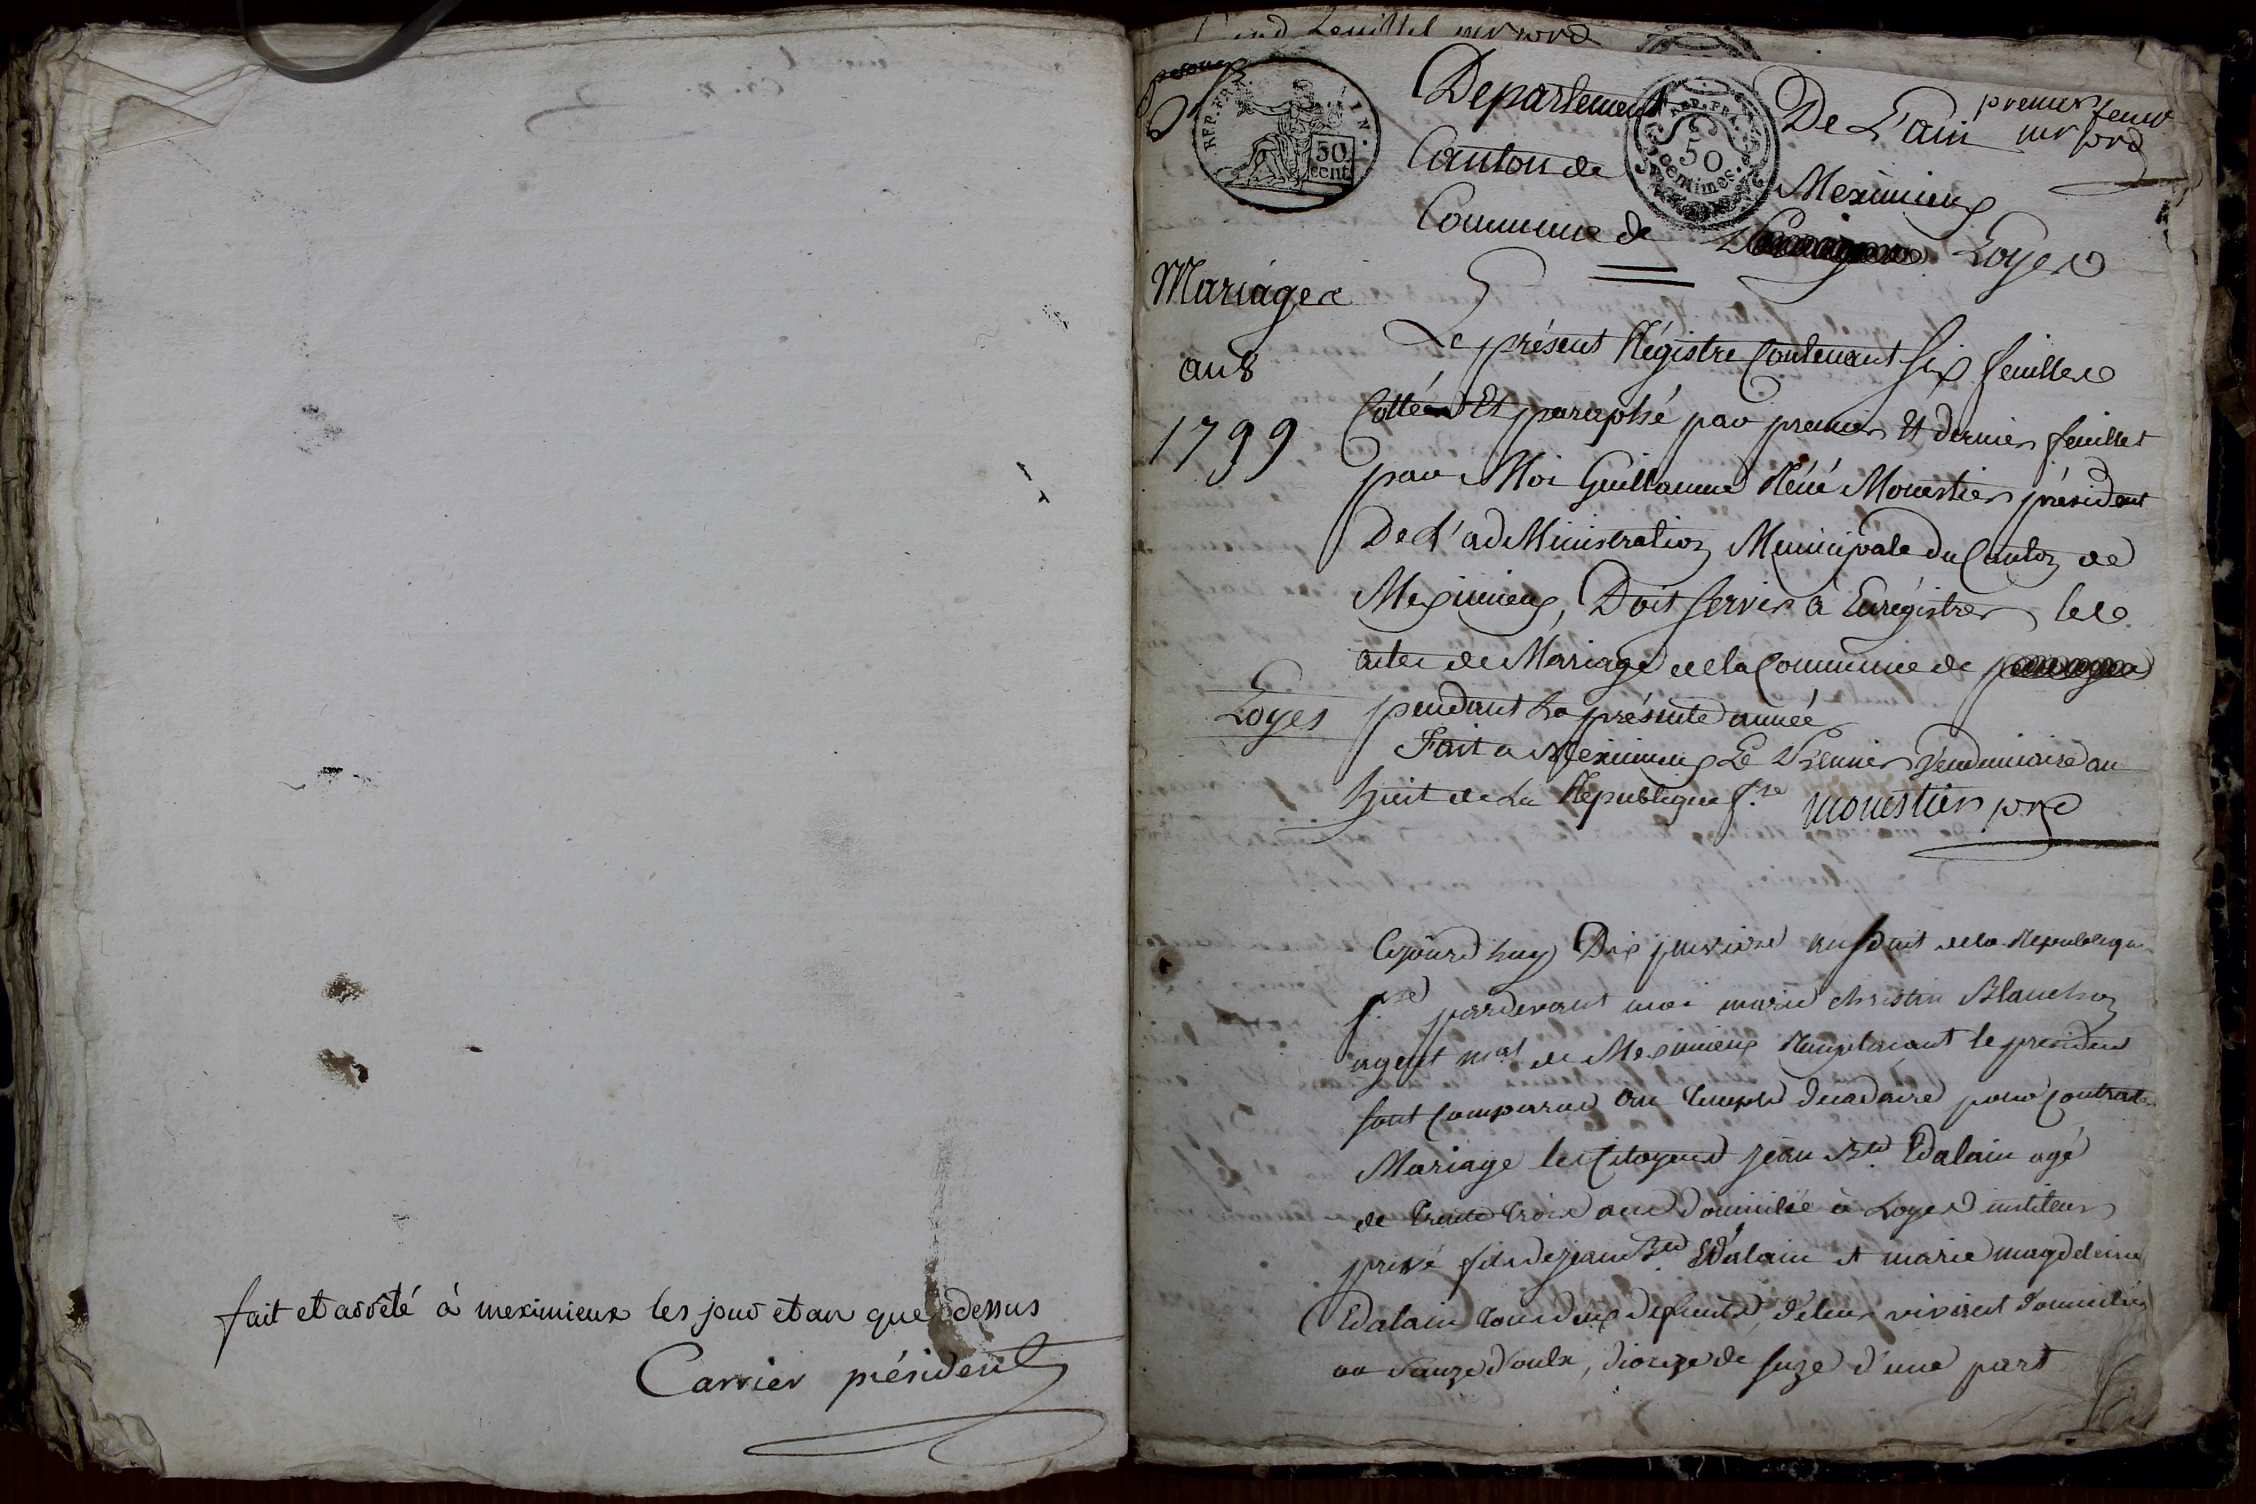 fait et arrêté à meximieux les jour et an que dessus
Carrier président
feuillet
REP. FRA.
50
cent.
50
centimes.
Departement De L'ain
premier feuil
Canton de Meximieux
Commune de Loyes
Mariages
an 8
1799
Le présent Régistre Contenant six feuilles
Cottés Et paraphé par premier Et dernier feuillet
par Moi Guillaume Réné Monestier président
De L'adMinistration Municipale Du Canton de
Meximieux, Doit servir à Enrégistrer les
actes de Mariage de la Commune de
Loyes
pendant La présente année
Fait a Meximieux Le Premier Vendemiaire an
huit de La République f.se monestier
Cejourd'huy Dix an huit de la Republique
f.se pardevant moi marie christin Blanchon
agent m.al de Meximieux Remplacant le president
sont Comparus au temple decadaire pour Contracter
Mariage les Citoyens jean B.te Edalain agé
de trente trois ans domicilié à Loyes instituteur
privé fils de jean B.te Edalain et marie magdeleine
Edalain tous deux defunts, de leur vivant domiciliés
au d'oulx, diocèze de suze d'une part